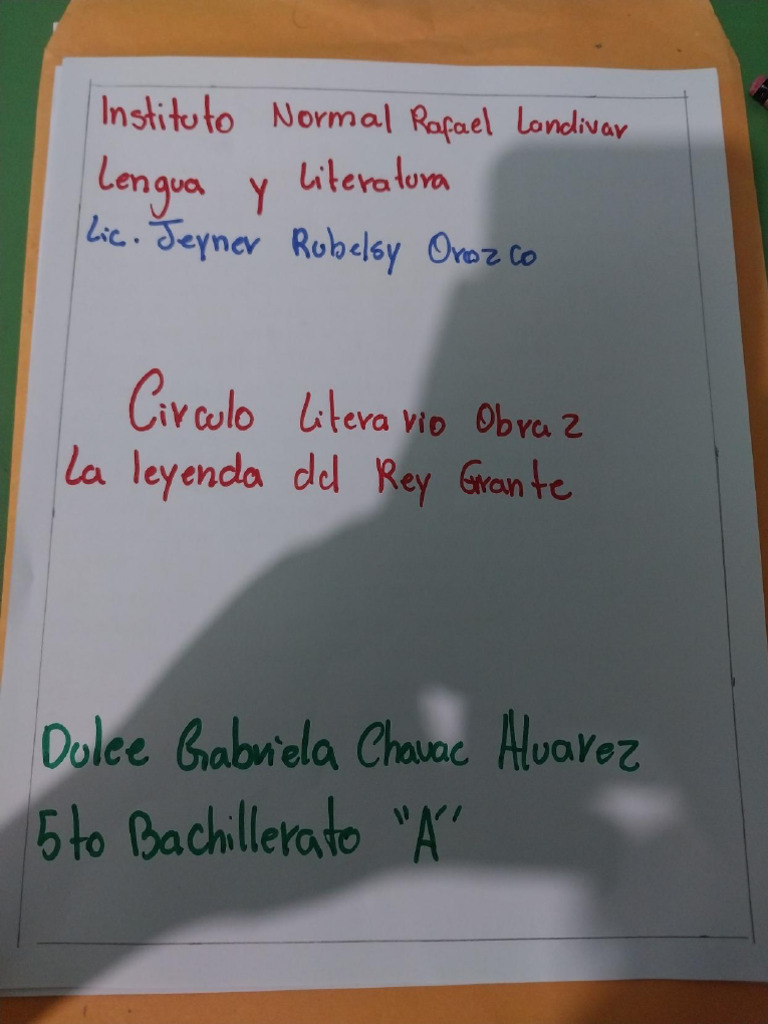 Instituto Normal Rafael Landivar
Lengua y Literatura
Lic. Jeyner Rubelsy Orozco
Circulo Literario Obra 2
La leyenda del Rey Errante
Dulce Gabriela Chavac Alvarez
5to Bachillerato "A"